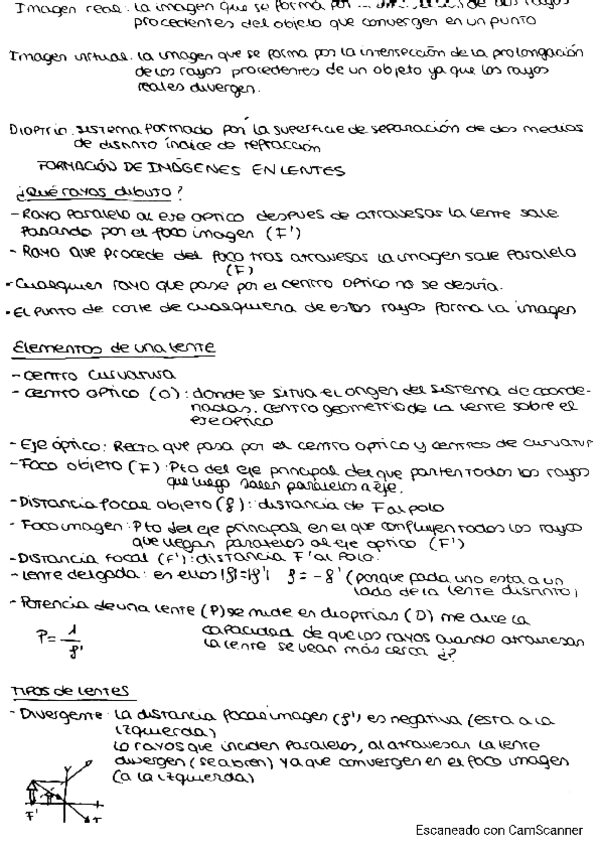 Imagen real: la imagen que se forma por rayos
procedentes del objeto que convergen en un punto
Imagen virtual: la imagen que se forma por la intersección de la prolongación
de los rayos procedentes de un objeto ya que los rayos
reales divergen.
Dioptrio: sistema formado por la superficie de separación de dos medios
de distinto índice de refracción
FORMACIÓN DE IMÁGENES EN LENTES
¿Qué rayos dibujo?
- Rayo paralelo al eje optico despues de atravesar la lente sale
pasando por el foco imagen (F')
- Rayo que procede del foco tras atravesar la imagen sale paralelo
(F)
- Cualquier rayo que pase por el centro optico no se desvía.
• El punto de corte de cualquiera de estos rayos forma la imagen
Elementos de una lente
- centro curvatura
- centro optico (O): donde se situa el origen del sistema de coorde-
nadas. centro geometrico de la lente sobre el
eje optico
- Eje óptico: Recta que pasa por el centro optico y centros de curvatur
- Foco objeto (F): Pto del eje principal del que parten todos los rayos
que luego salen paralelos a eje.
- Distancia focal objeto (f): distancia de F al polo
- Foco imagen: Pto del eje principal en el que confluyen todos los rayos
que llegan paralelos al eje optico (F')
- Distancia focal (f'): distancia F' al Polo.
- lente delgada: en ellos |f|=|f'| f = -f' (porque cada uno esta a un
lado de la lente distinto)
- Potencia de una lente (P) se mide en dioptrias (D) me dice la
capacidad de que los rayos cuando atraviesan
la lente se vean más cerca ¿?
P = 1/f'
TIPOS de LENTES
- Divergente: la distancia focal imagen (f') es negativa (esta a la
izquierda)
Lo rayos que inciden paralelos, al atravesar la lente
divergen (se abren) ya que convergen en el foco imagen
(a la izquierda)
F'
Escaneado con CamScanner